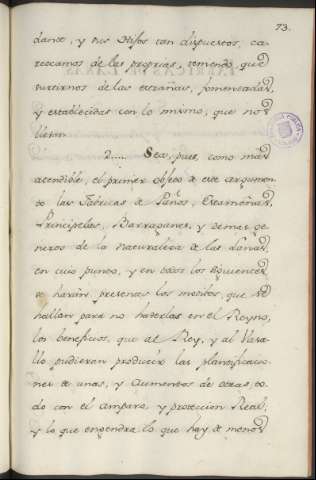 73.
dante, y sus Hijos tan dispuestos, ca-
rezcamos de las proprias, teniendo que
surtirnos de las estrañas, fomentadas,
y establecidas con lo mismo, que nos
llevan.
2.... Sea, pues, como mas
atendible, el primer objeto de este argumen-
to las Fabricas de Paños, Estameñas,
Principelas, Barraganes, y demas ge-
neros de la naturaleza de las Lanas,
en cuio punto, y en todos los siguientes
se harán presentes los motivos, que se
hallan para no haverlas en el Reyno,
los beneficios, que al Rey, y al Vasa-
llo pudieran producir las plantificacio-
nes de unas, y Aumentos de otras, to-
do con el amparo, y proteccion Real;
y lo que engendra lo que hay de menos